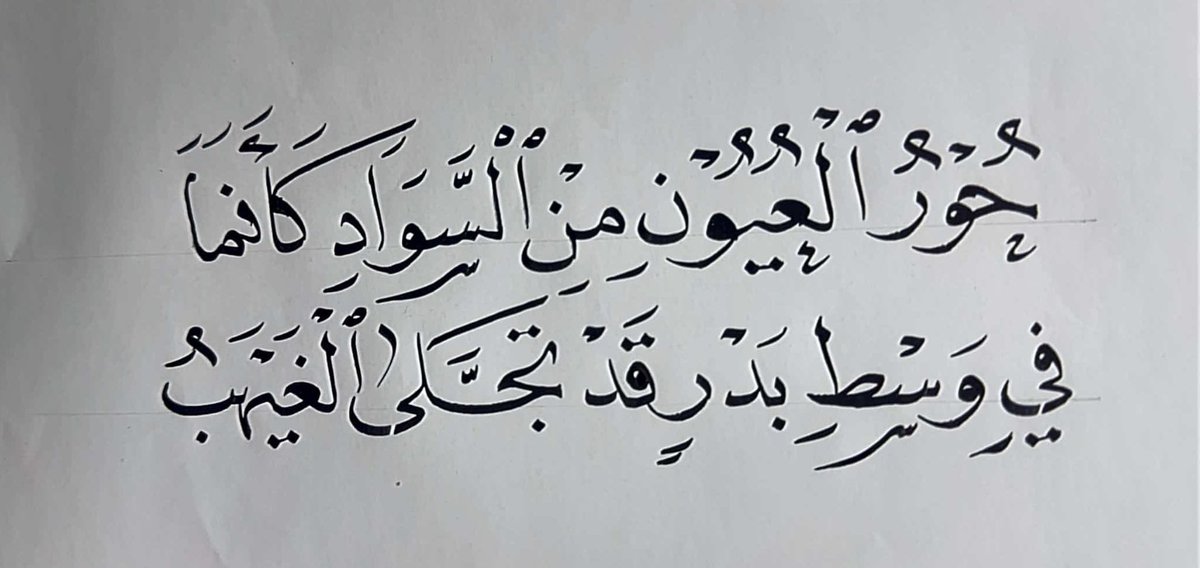 حُوْرُ ٱلْعُيُوْنِ مِنْ ٱلْسَّوَادِ كَأَنَمَا
فِي وَسْطِ بَدْرٍ قَدْ تَجَلَّى ٱلْغَيَهَبُ